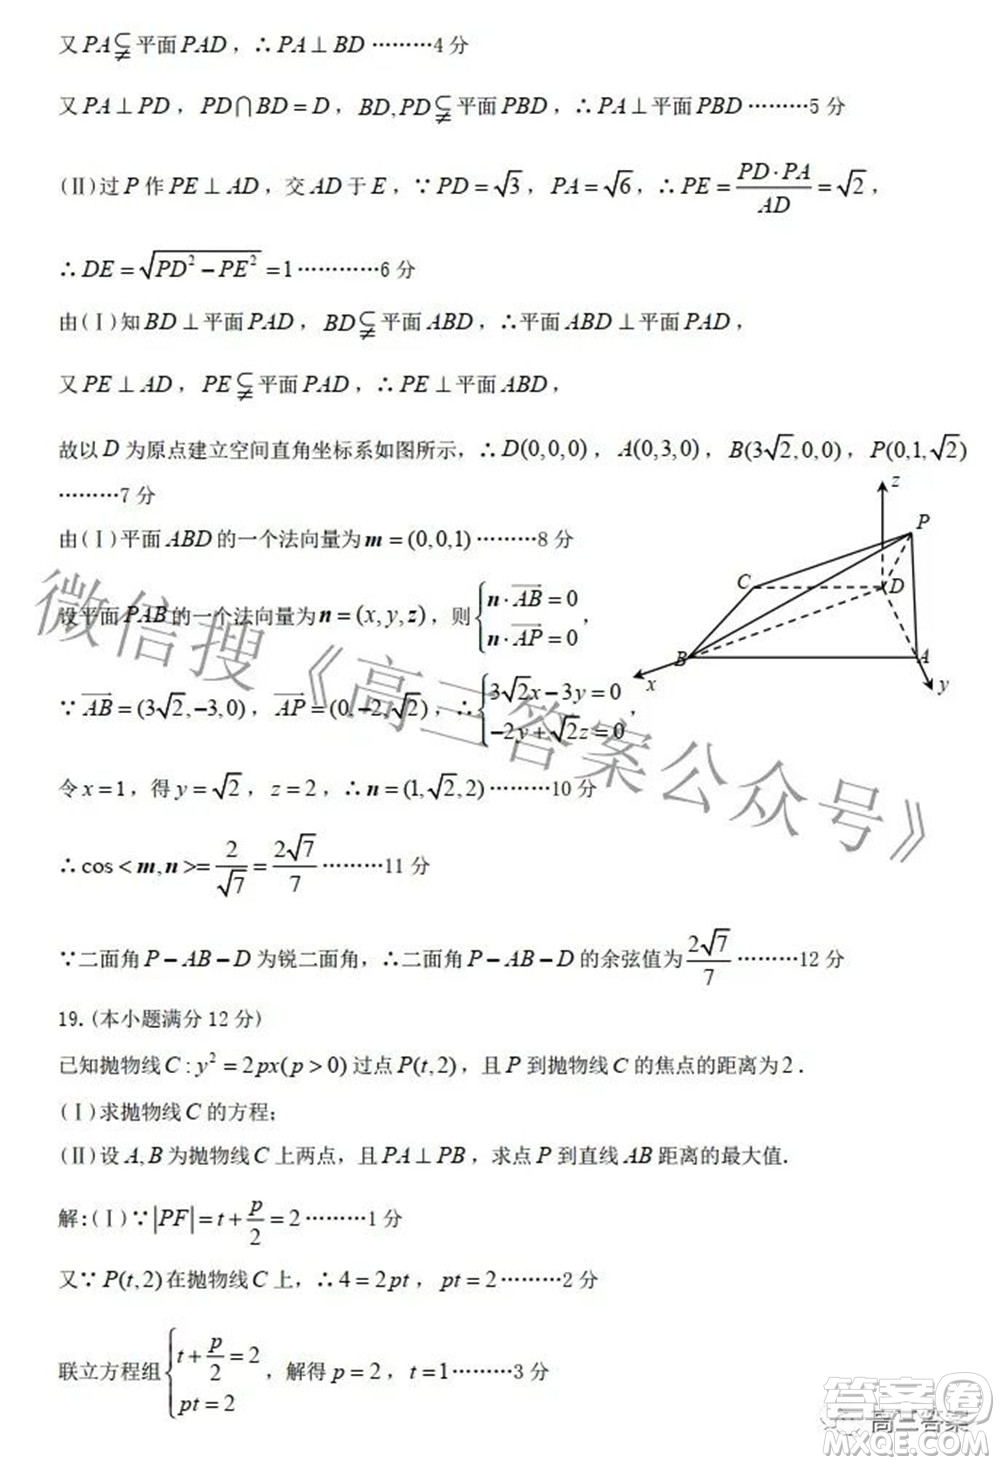 又PA⫋平面PAD，∴PA⊥BD ………4分
又PA⊥PD，PD∩BD=D，BD,PD⫋平面PBD，∴PA⊥平面PBD ………5分
(Ⅱ)过P作PE⊥AD，交AD于E，∵PD=√3，PA=√6，∴PE=PD·PA/AD=√2，
∴DE=√(PD²−PE²)=1 …………6分
由(Ⅰ)知BD⊥平面PAD，BD⫋平面ABD，∴平面ABD⊥平面PAD，
又PE⊥AD，PE⫋平面PAD，∴PE⊥平面ABD，
故以D为原点建立空间直角坐标系如图所示，∴D(0,0,0)，A(0,3,0)，B(3√2,0,0)，P(0,1,√2)
………7分
由(Ⅰ)平面ABD的一个法向量为m=(0,0,1) ………8分
设平面PAB的一个法向量为n=(x,y,z)，则{n·AB=0
n·AP=0，
∵AB=(3√2,−3,0)，AP=(0,−2,√2)，∴{3√2x−3y=0
−2y+√2z=0，
令x=1，得y=√2，z=2，∴n=(1,√2,2) ………10分
∴cos<m,n>=2/√7=2√7/7 ………11分
∵二面角P−AB−D为锐二面角，∴二面角P−AB−D的余弦值为2√7/7 ………12分
z
P
C
D
B
A
x
y
19.(本小题满分12分)
已知抛物线C:y²=2px(p>0)过点P(t,2)，且P到抛物线C的焦点的距离为2．
(Ⅰ)求抛物线C的方程；
(Ⅱ)设A,B为抛物线C上两点，且PA⊥PB，求点P到直线AB距离的最大值.
解:(Ⅰ)∵|PF|=t+p/2=2 ………1分
又∵P(t,2)在抛物线C上，∴4=2pt，pt=2 ………2分
联立方程组{t+p/2=2
pt=2，解得p=2，t=1 ………3分
微信搜《高三答案公众号》
高三答案
答案圈
MXQE.COM